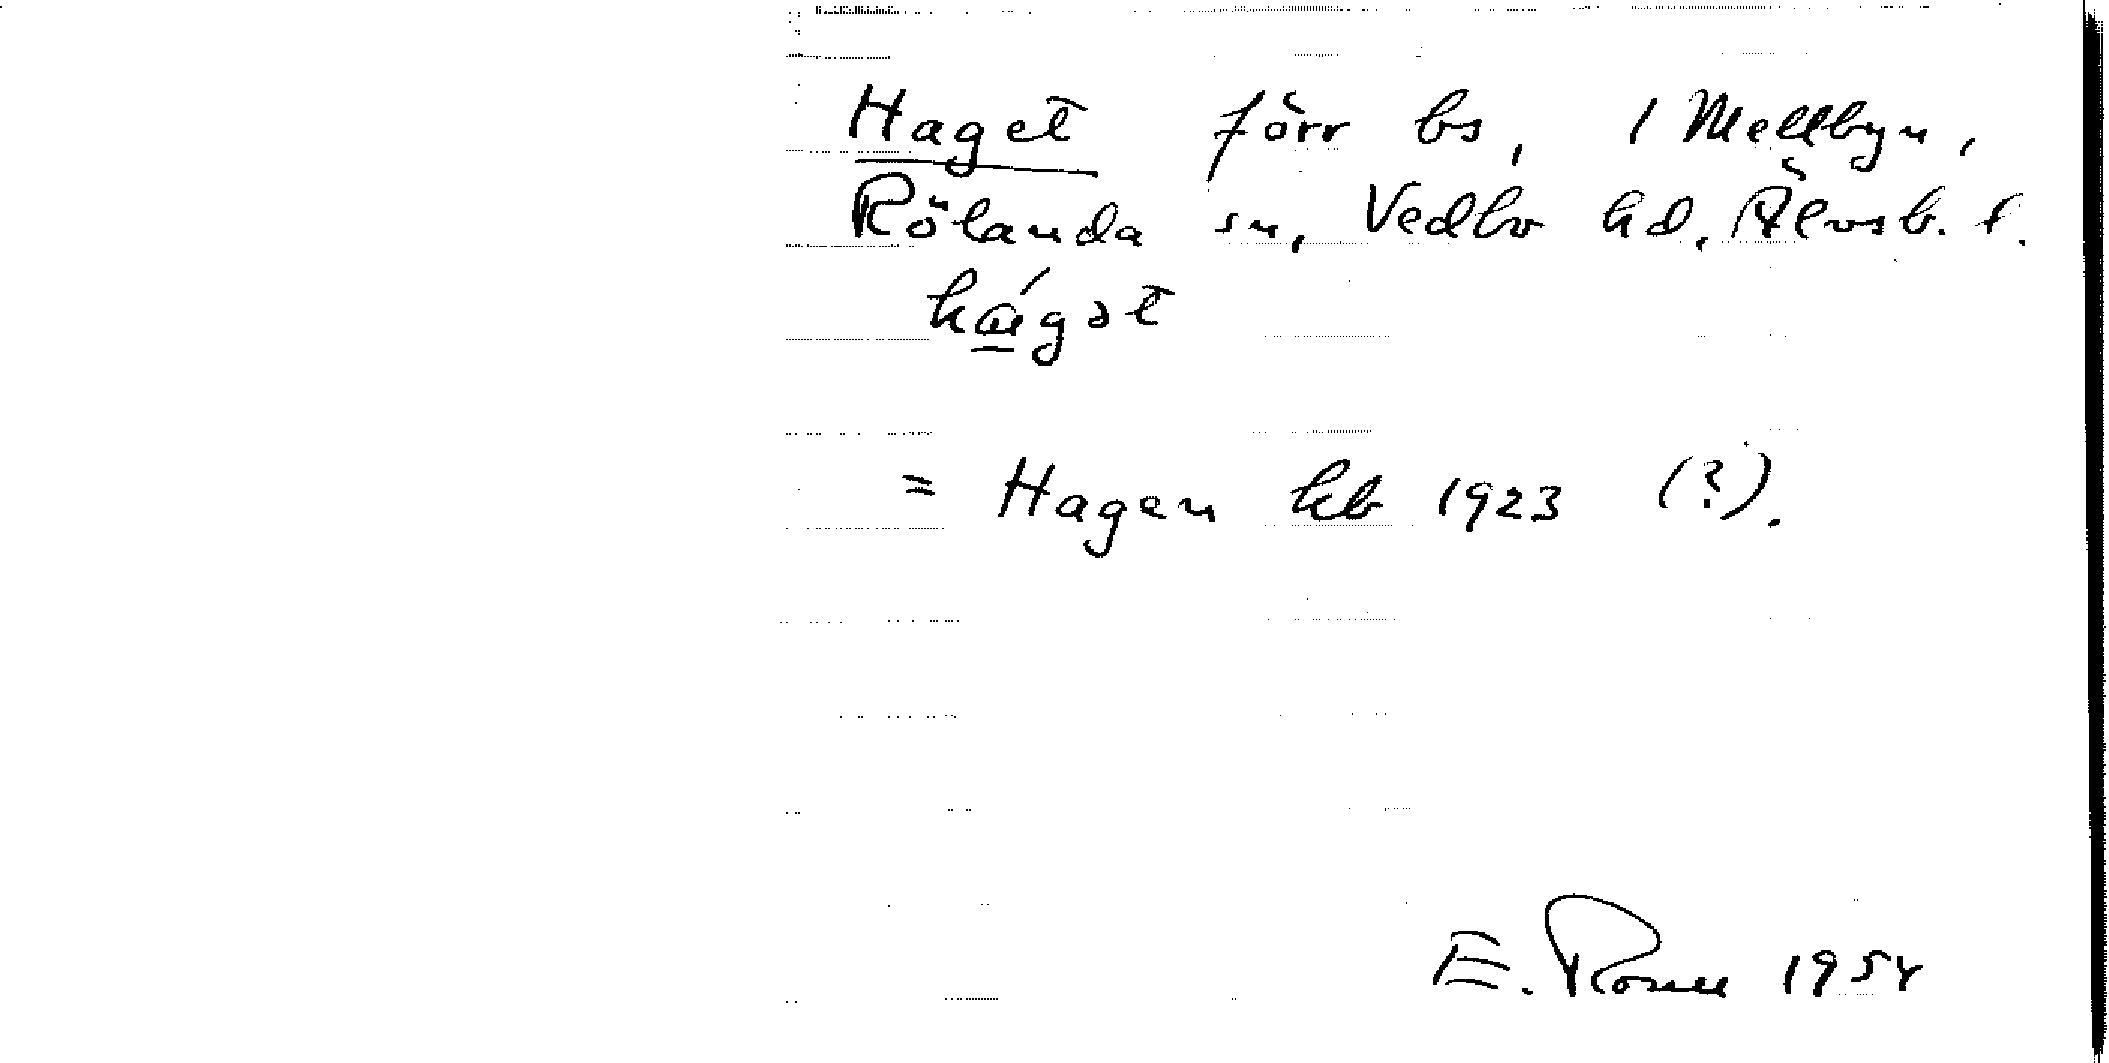 Haget förr bs, i Mellbyn,
Rölanda sn, Vedbo hd, Älvsb. l.
hágət
= Hagen kb 1923 (?).
E. 1954